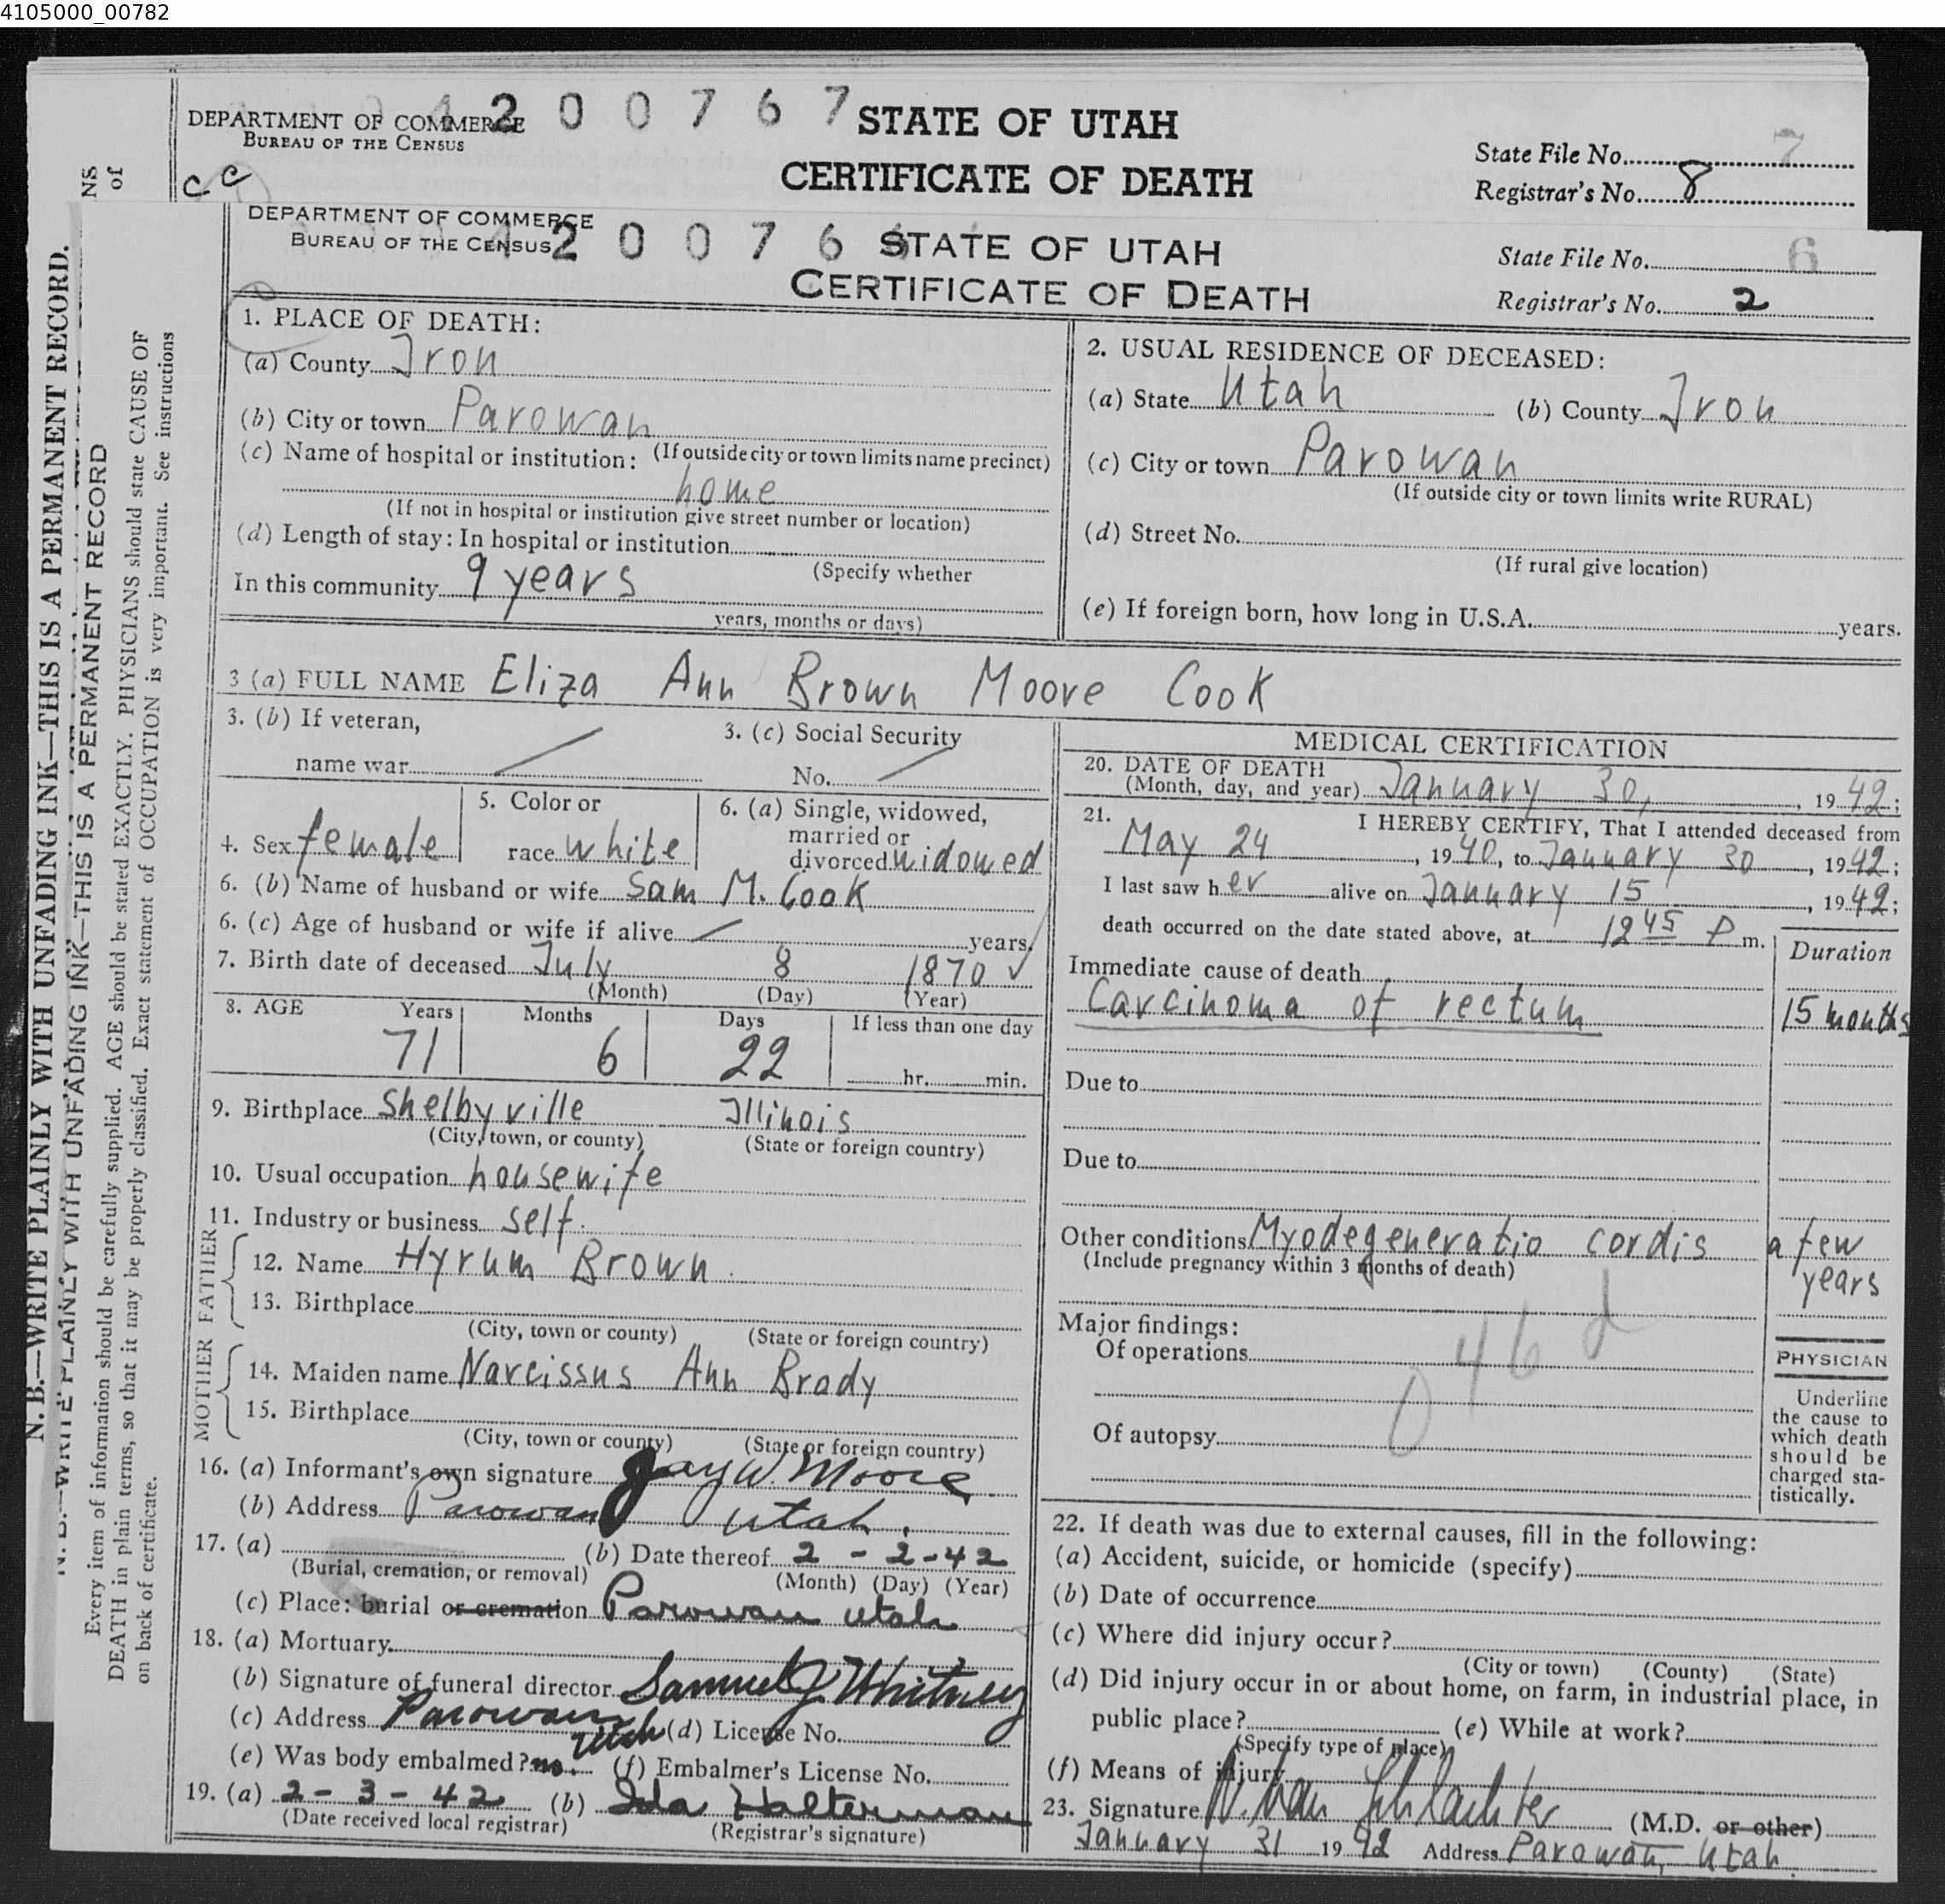 4105000_00782
DEPARTMENT OF COMMERCE
BUREAU OF THE CENSUS
4200767
STATE OF UTAH
CERTIFICATE OF DEATH
State File No. 7
Registrar's No. 8
CC
NS
of
DEPARTMENT OF COMMERCE
BUREAU OF THE CENSUS
420076
STATE OF UTAH
CERTIFICATE OF DEATH
State File No. 6
Registrar's No. 2
N. B.—WRITE PLAINLY WITH UNFADING INK—THIS IS A PERMANENT RECORD.
N. B.—WRITE PLAINLY WITH UNFADING INK—THIS IS A PERMANENT RECORD
Every item of information should be carefully supplied. AGE should be stated EXACTLY. PHYSICIANS should state CAUSE OF
DEATH in plain terms, so that it may be properly classified. Exact statement of OCCUPATION is very important. See instructions
on back of certificate.
1. PLACE OF DEATH:
(a) County Iron
(b) City or town Parowan
(c) Name of hospital or institution: (If outside city or town limits name precinct)
home
(If not in hospital or institution give street number or location)
(d) Length of stay: In hospital or institution
(Specify whether
In this community 9 years
years, months or days)
2. USUAL RESIDENCE OF DECEASED:
(a) State Utah (b) County Iron
(c) City or town Parowan
(If outside city or town limits write RURAL)
(d) Street No.
(If rural give location)
(e) If foreign born, how long in U.S.A. years.
3 (a) FULL NAME Eliza Ann Brown Moore Cook
3. (b) If veteran,
name war
3. (c) Social Security
No.
4. Sex female
5. Color or
race white
6. (a) Single, widowed,
married or
divorced widowed
6. (b) Name of husband or wife Sam M. Cook
6. (c) Age of husband or wife if alive years.
7. Birth date of deceased July 8 1870 ✓
(Month) (Day) (Year)
8. AGE Years Months Days If less than one day
71 6 22 hr. min.
9. Birthplace Shelbyville Illinois
(City, town, or county) (State or foreign country)
10. Usual occupation housewife
11. Industry or business self.
FATHER
12. Name Hyrum Brown
13. Birthplace
(City, town or county) (State or foreign country)
MOTHER
14. Maiden name Narcissus Ann Brady
15. Birthplace
(City, town or county) (State or foreign country)
16. (a) Informant's own signature Jay W. Moore
(b) Address Parowan Utah.
17. (a) (b) Date thereof 2 - 2 - 42
(Burial, cremation, or removal) (Month) (Day) (Year)
(c) Place: burial or cremation Parowan Utah
18. (a) Mortuary
(b) Signature of funeral director Samuel J. Whitney
(c) Address Parowan Utah (d) License No.
(e) Was body embalmed? no. (f) Embalmer's License No.
19. (a) 2 - 3 - 42 (b) Ida Halterman
(Date received local registrar) (Registrar's signature)
MEDICAL CERTIFICATION
20. DATE OF DEATH
(Month, day, and year) January 30, , 1942;
21. I HEREBY CERTIFY, That I attended deceased from
May 24 , 1940, to January 30 , 1942;
I last saw her alive on January 15 , 1942;
death occurred on the date stated above, at 1245 P m.
Duration
Immediate cause of death
Carcinoma of rectum 15 months
Due to
Due to
Other conditions Myodegeneratio cordis a few
(Include pregnancy within 3 months of death) years
Major findings:
Of operations
46 d
0
Of autopsy
PHYSICIAN
Underline
the cause to
which death
should be
charged sta-
tistically.
22. If death was due to external causes, fill in the following:
(a) Accident, suicide, or homicide (specify)
(b) Date of occurrence
(c) Where did injury occur?
(City or town) (County) (State)
(d) Did injury occur in or about home, on farm, in industrial place, in
public place? (e) While at work?
(Specify type of place)
(f) Means of injury
23. Signature Van Schlachter (M.D. or other)
January 31 1942 Address Parowan, Utah.